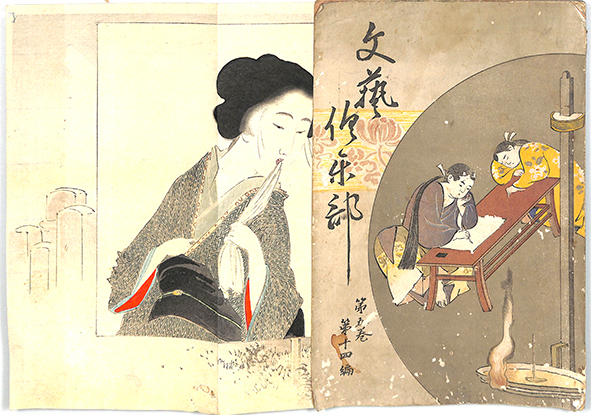 文藝倶楽部
第五巻
第十四編